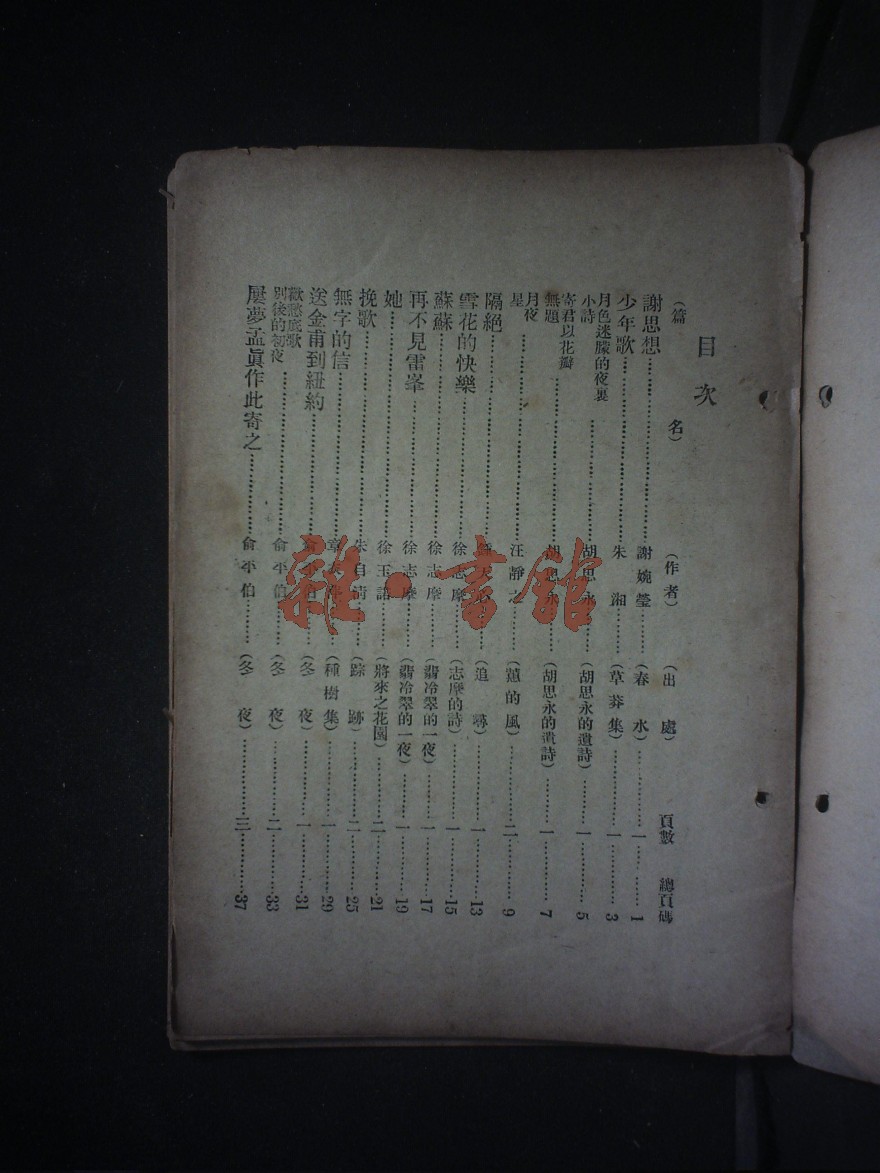 目次
(篇名) (作者) (出處) 頁數 總頁碼
謝思想 謝婉瑩 (春水) 一 1
少年歌 朱湘 (草莽集) 一 3
月色迷朦的夜裏
小詩 胡思永 (胡思永的遺詩) 一 5
寄君以花瓣
無題 胡思永 (胡思永的遺詩) 一 7
月夜
星 汪靜之 (蕙的風) 二 9
隔絕 (追尋) 一 13
雪花的快樂 徐志摩 (志摩的詩) 一 15
蘇蘇 徐志摩 (翡冷翠的一夜) 一 17
再不見雷峯 徐志摩 (翡冷翠的一夜) 一 19
她 徐玉諾 (將來之花園) 二 21
挽歌 朱自清 (踪跡) 二 25
無字的信 (種樹集) 一 29
送金甫到紐約 俞平伯 (冬夜) 一 31
歡愁底歌
別後的初夜 俞平伯 (冬夜) 二 33
屢夢孟眞作此寄之 俞平伯 (冬夜) 三 37
雜·書館